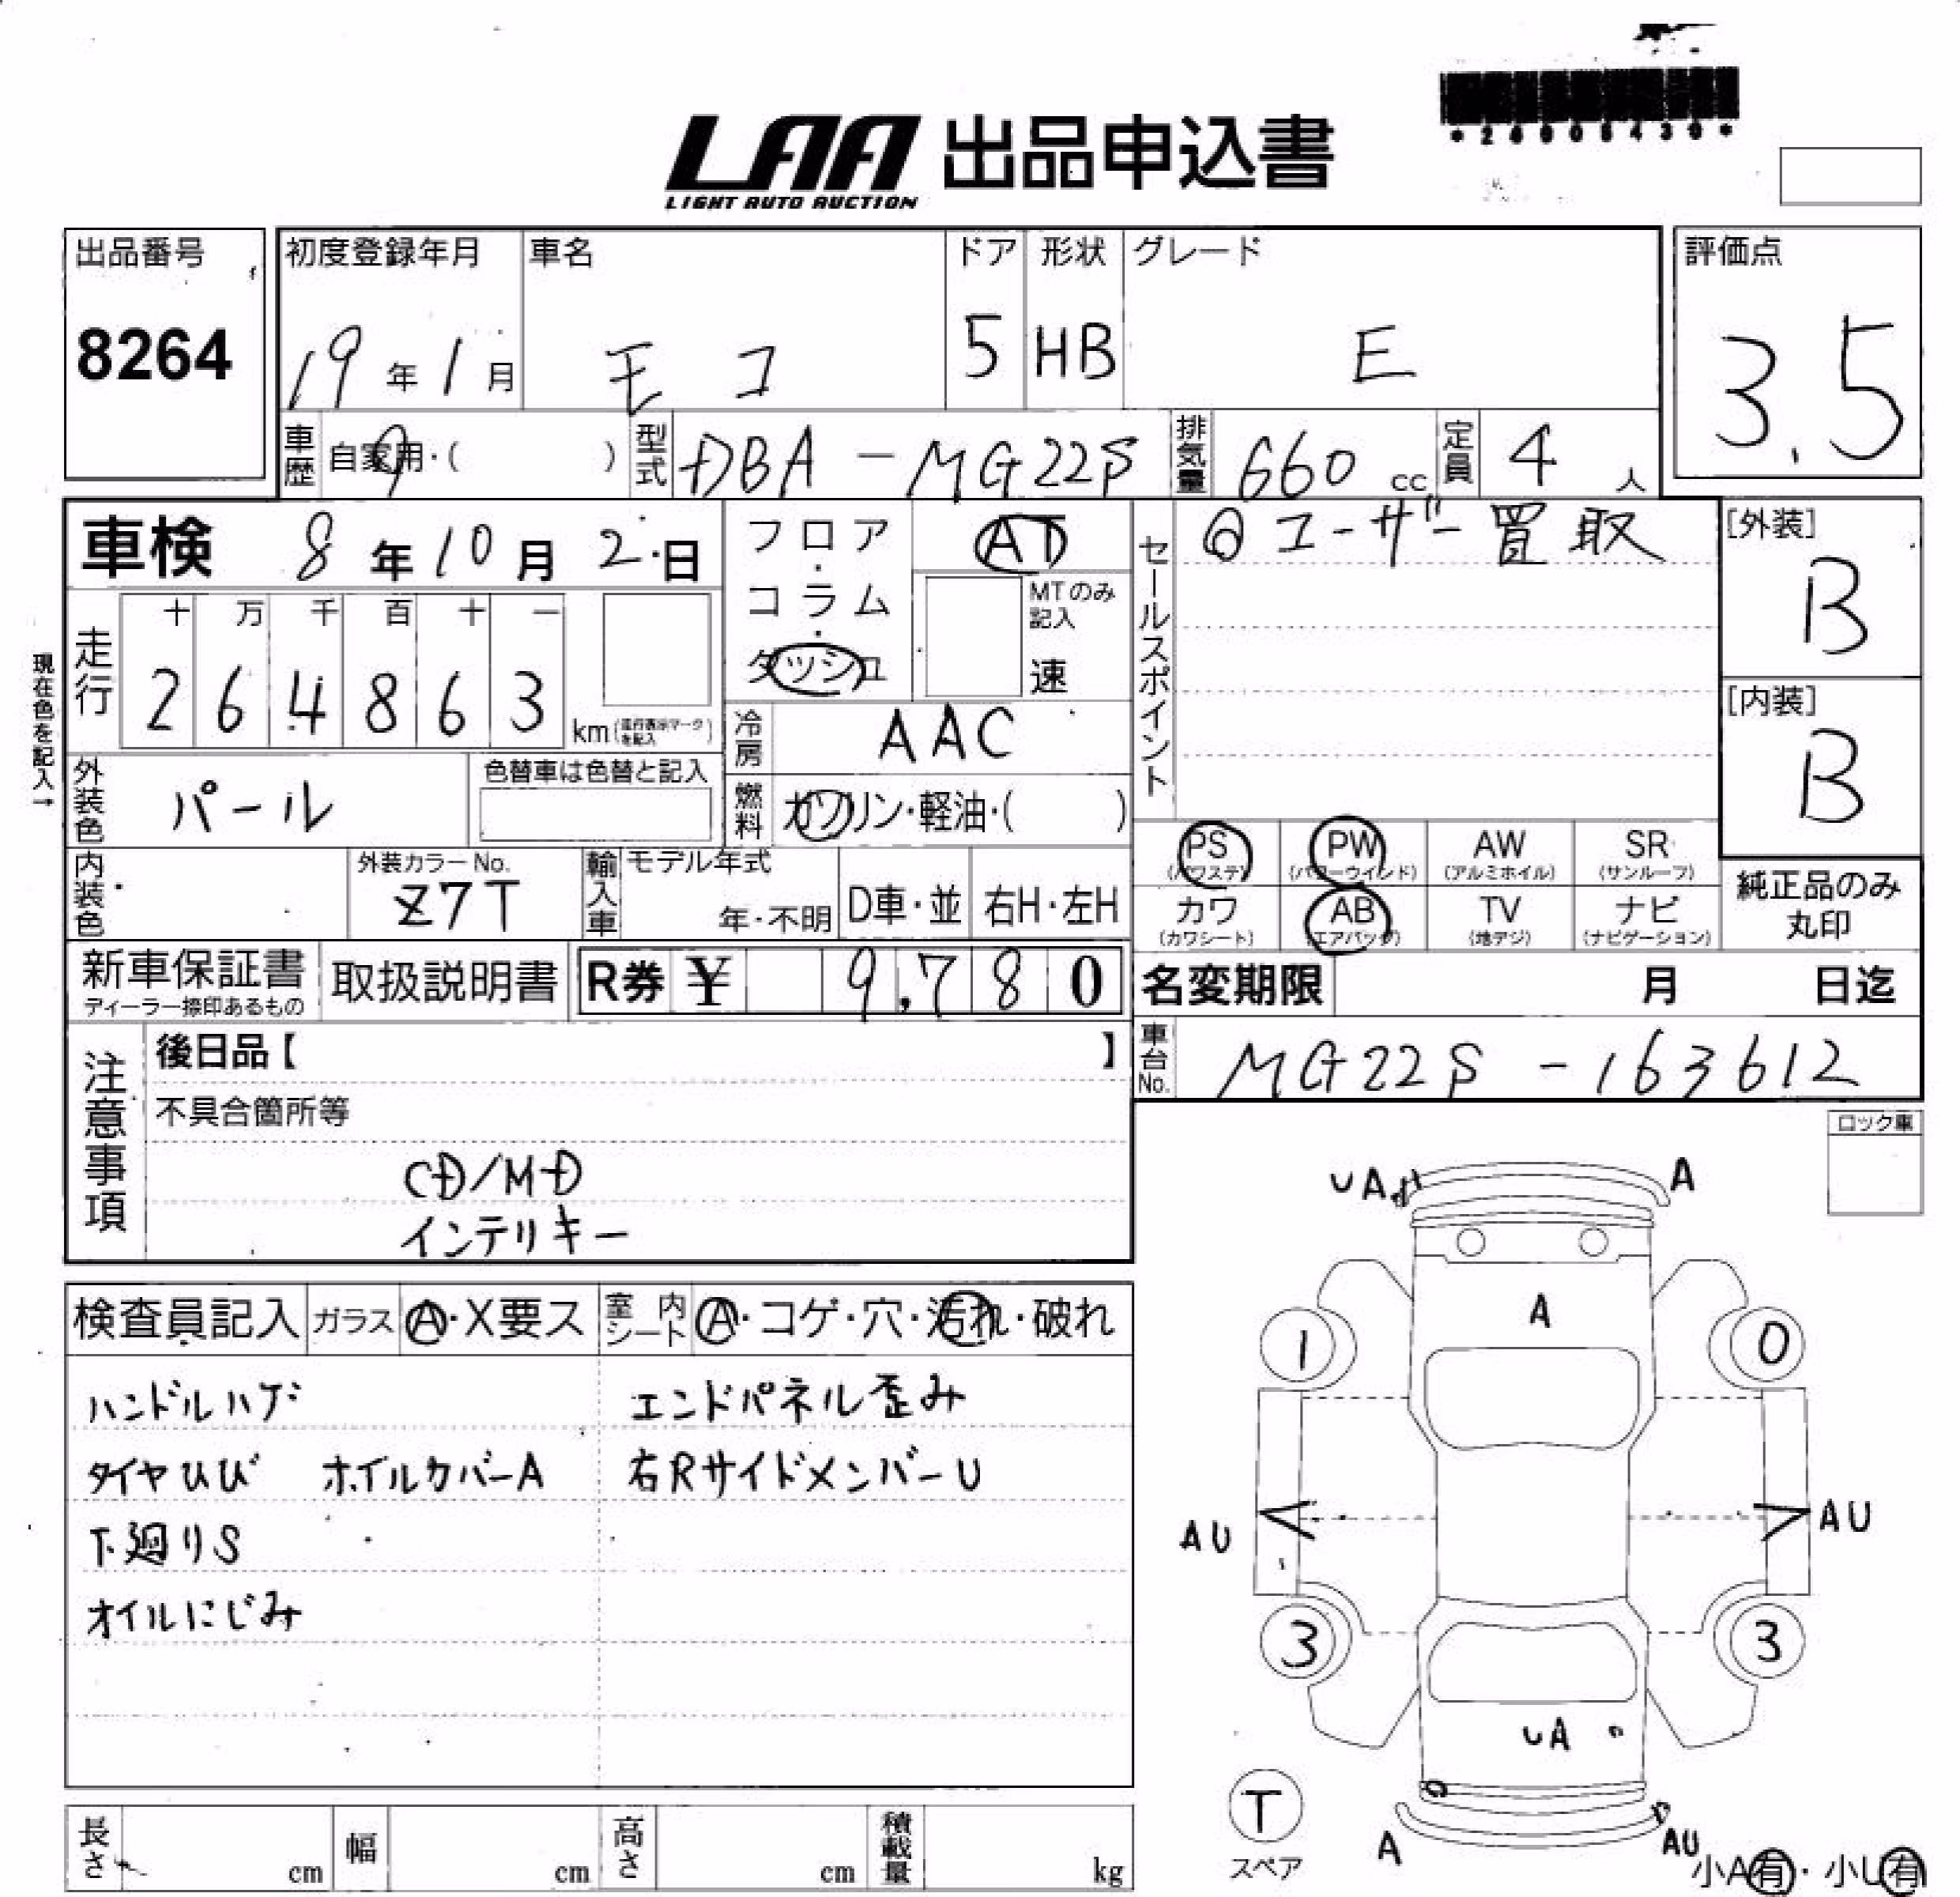 *26008430*
LAA 出品申込書
LIGHT AUTO AUCTION
出品番号 8264
初度登録年月 19年1月
車名 モコ
ドア 5
形状 HB
グレード E
評価点 3.5
車歴 自家用・( )
型式 DBA-MG22S
排気量 660 cc
定員 4 人
車検 8年10月2日
フロア・コラム・ダッシュ
AT
MTのみ記入 速
セールスポイント
◎ユーザー買取
[外装] B
[内装] B
現在色を記入→
走行 十 万 千 百 十 一
2 6 4 8 6 3 km (走行表示マークを記入)
冷房 AAC
外装色 パール
色替車は色替と記入
燃料 ガソリン・軽油・( )
内装色
外装カラーNo. Z7T
輸入車 モデル年式 年・不明 D車・並 右H・左H
PS (パワステ) PW (パワーウインド) AW (アルミホイル) SR (サンルーフ)
カワ (カワシート) AB (エアバッグ) TV (地デジ) ナビ (ナビゲーション)
純正品のみ丸印
新車保証書 ディーラー捺印あるもの
取扱説明書
R券 ¥ 9,780
名変期限 月 日迄
車台No. MG22S-163612
注意事項
後日品【 】
不具合箇所等
CD/MD
インテリキー
ロック車
検査員記入 ガラス A・X要ス 室内シート A・コゲ・穴・汚れ・破れ
ハンドルハゲ エンドパネル歪み
タイヤひび ホイルカバーA 右RサイドメンバーU
下廻りS
オイルにじみ
UA A
A
1 0
AU AU
3 3
UA
T
スペア
A AU
小A有・小U有
長さ cm 幅 cm 高さ cm 積載量 kg